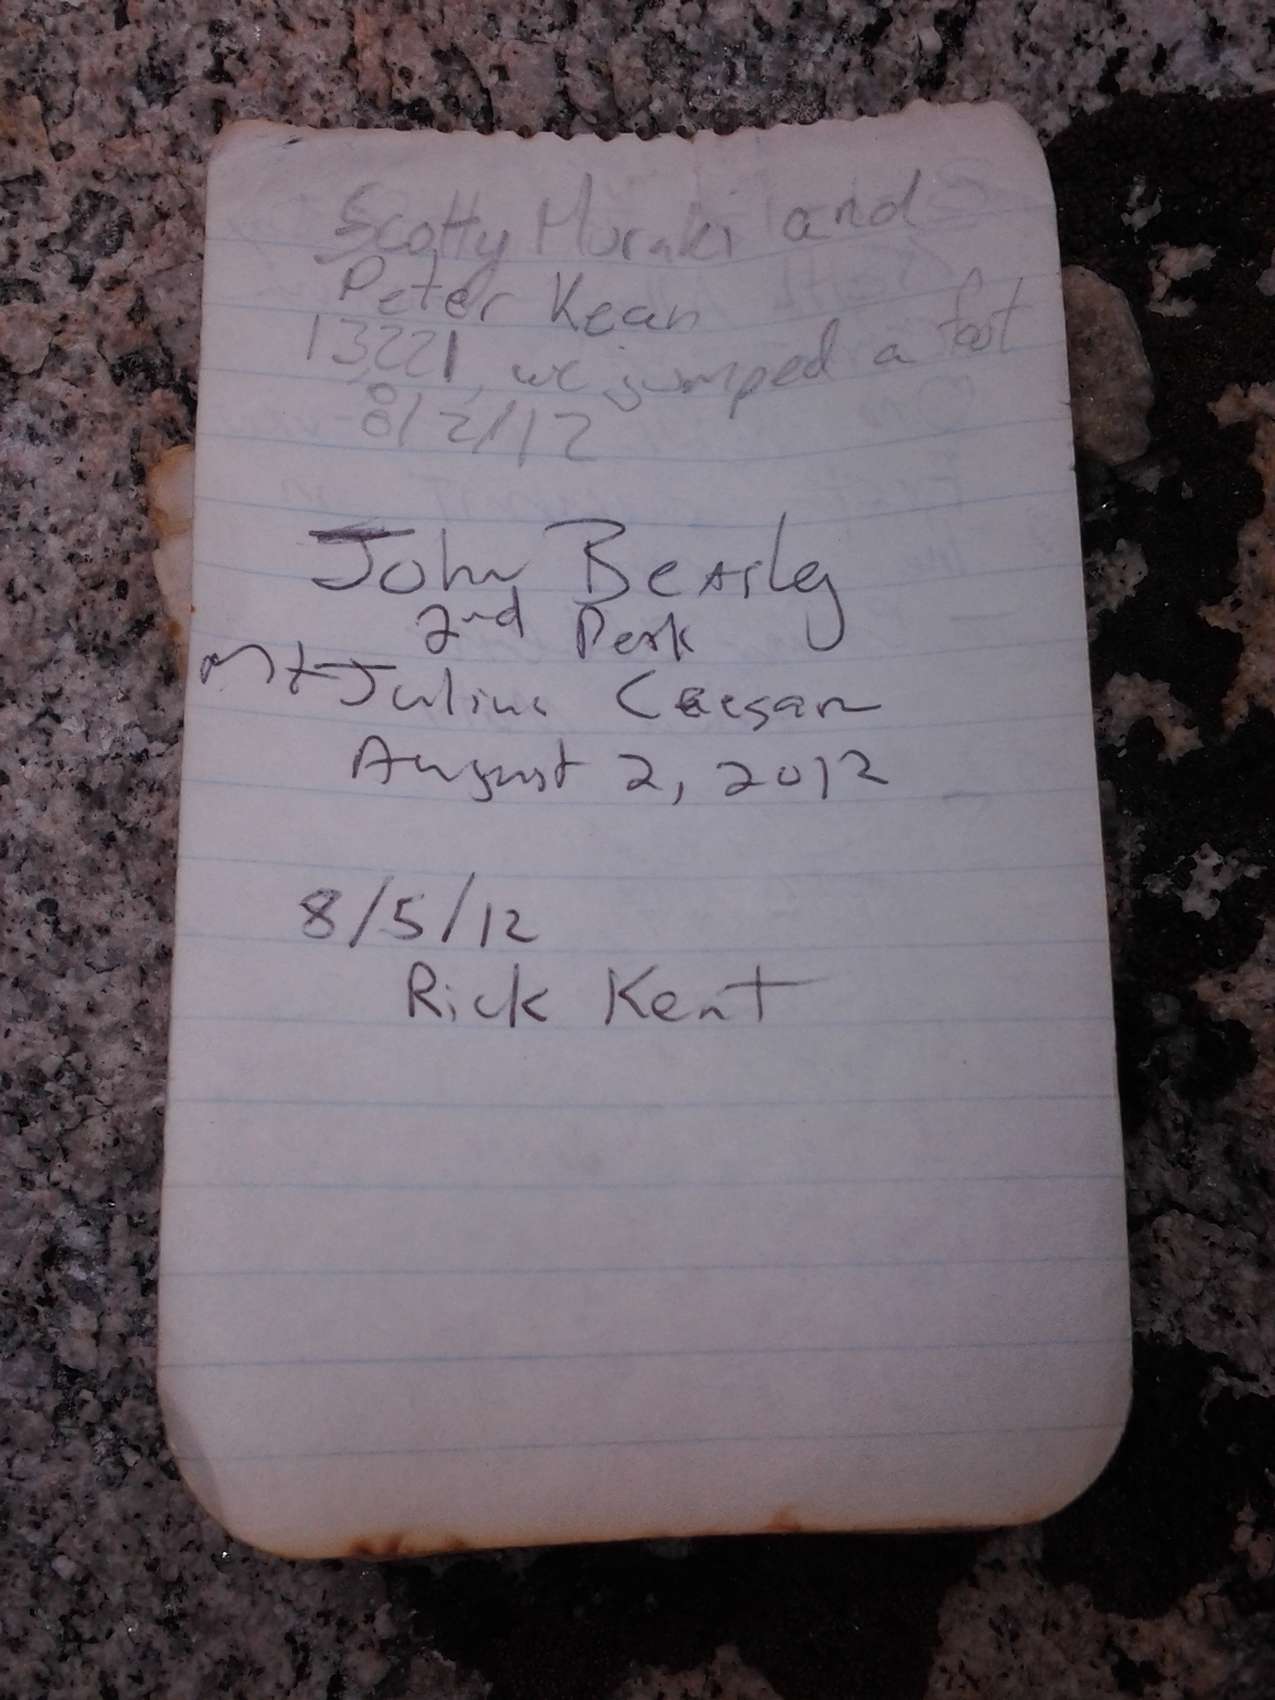 Scotty Muraki and
Peter Kean
13,221, we jumped a foot
8/2/12
John Beasley
2nd Peak
Mt Julius Caesar
August 2, 2012
8/5/12
Rick Kent